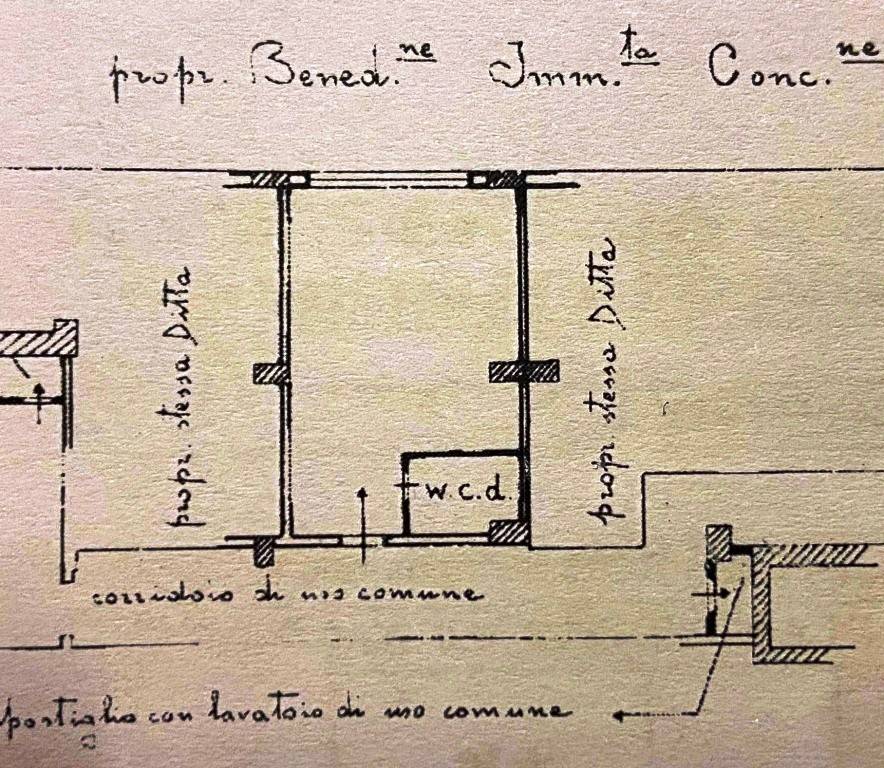 propr. Bened.ne Imm.ta Conc.ne
propr. stessa Ditta
propr. stessa Ditta
w.c.d.
corridoio di uso comune
postiglio con lavatoio di uso comune